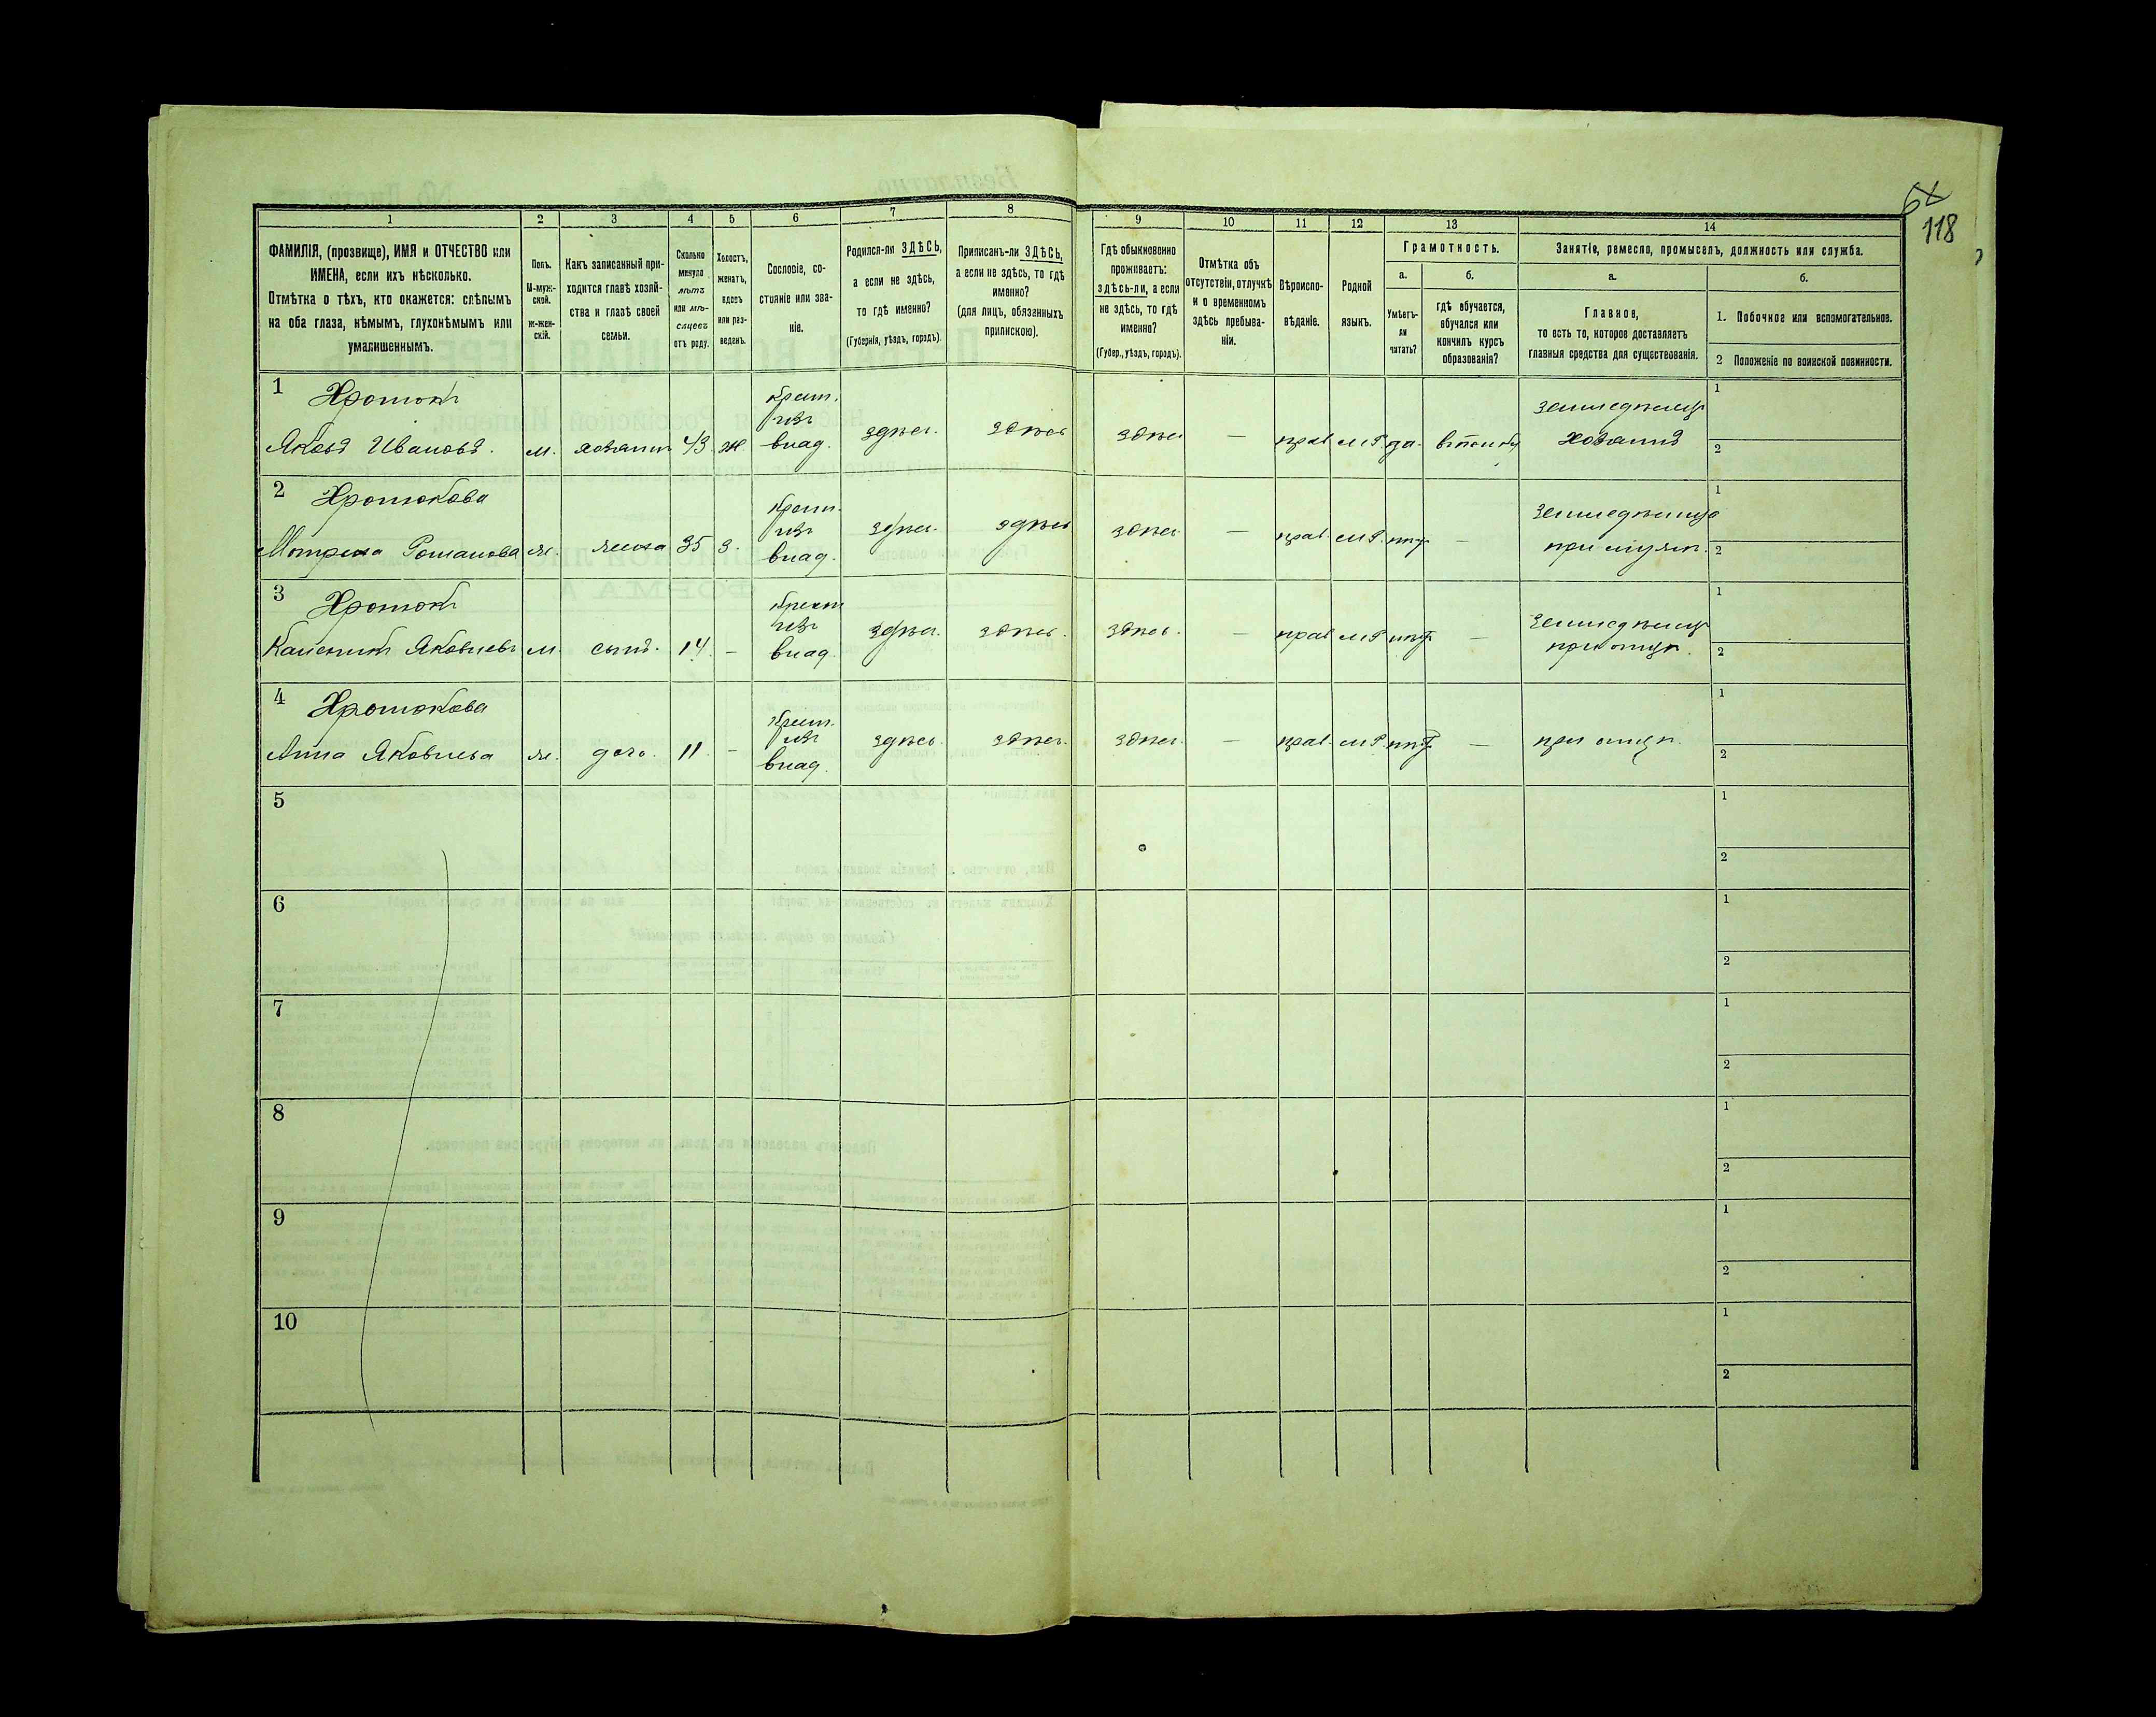 64
118
1
2
3
4
5
6
7
8
9
10
11
12
13
14
ФАМИЛІЯ, (прозвище), ИМЯ и ОТЧЕСТВО или
ИМЕНА, если ихъ нѣсколько.
Отмѣтка о тѣхъ, кто окажется: слѣпымъ
на оба глаза, нѣмымъ, глухонѣмымъ или
умалишеннымъ.
Полъ.
М-муж-
ской.
ж-жен-
скій.
Какъ записанный при-
ходится главѣ хозяй-
ства и главѣ своей
семьи.
Сколько
минуло
лѣтъ
или мѣ-
сяцевъ
отъ роду.
Холостъ,
женатъ,
вдовъ
или раз-
веденъ.
Сословіе, со-
стояніе или зва-
ніе.
Родился-ли ЗДѢСЬ,
а если не здѣсь,
то гдѣ именно?
(Губернія, уѣздъ, городъ).
Приписанъ-ли ЗДѢСЬ,
а если не здѣсь, то гдѣ
именно?
(для лицъ, обязанныхъ
припискою).
Гдѣ обыкновенно
проживаетъ:
здѣсь-ли, а если
не здѣсь, то гдѣ
именно?
(Губер., уѣздъ, городъ).
Отмѣтка объ
отсутствіи, отлучкѣ
и о временномъ
здѣсь пребыва-
ніи.
Вѣроиспо-
вѣданіе.
Родной
языкъ.
Грамотность.
а.
Умѣетъ-
ли
читать?
б.
гдѣ обучается,
обучался или
кончилъ курсъ
образованія?
Занятіе, ремесло, промыселъ, должность или служба.
а.
Главное,
то есть то, которое доставляетъ
главныя средства для существованія.
б.
1. Побочное или вспомогательное.
2 Положеніе по воинской повинности.
1 Хротюкъ
Яковъ Ивановъ. м. хозяинъ 43 ж. крест. изъ влад. здѣсь. здѣсь здѣсь — прав м.Р. да. земледѣлецъ хозяинъ 1 2
2 Хротюкова
Матрена Романова ж. жена 35 з. крест. изъ влад. здѣсь. здѣсь здѣсь — прав. м.Р. нѣт — земледѣлица при мужѣ. 1 2
3 Хротюкъ
Яковлевъ м. сынъ. 14 — крест изъ влад. здѣсь. здѣсь. здѣсь. — прав м.Р. нѣт — земледѣлецъ при отцѣ. 1 2
4 Хротюкова
Анна Яковлева ж. дочь. 11. — крест. изъ влад. здѣсь. здѣсь. здѣсь. — прав. м.Р. нѣт — при отцѣ. 1 2
5 1 2
6 1 2
7 1 2
8 1 2
9 1 2
10 1 2